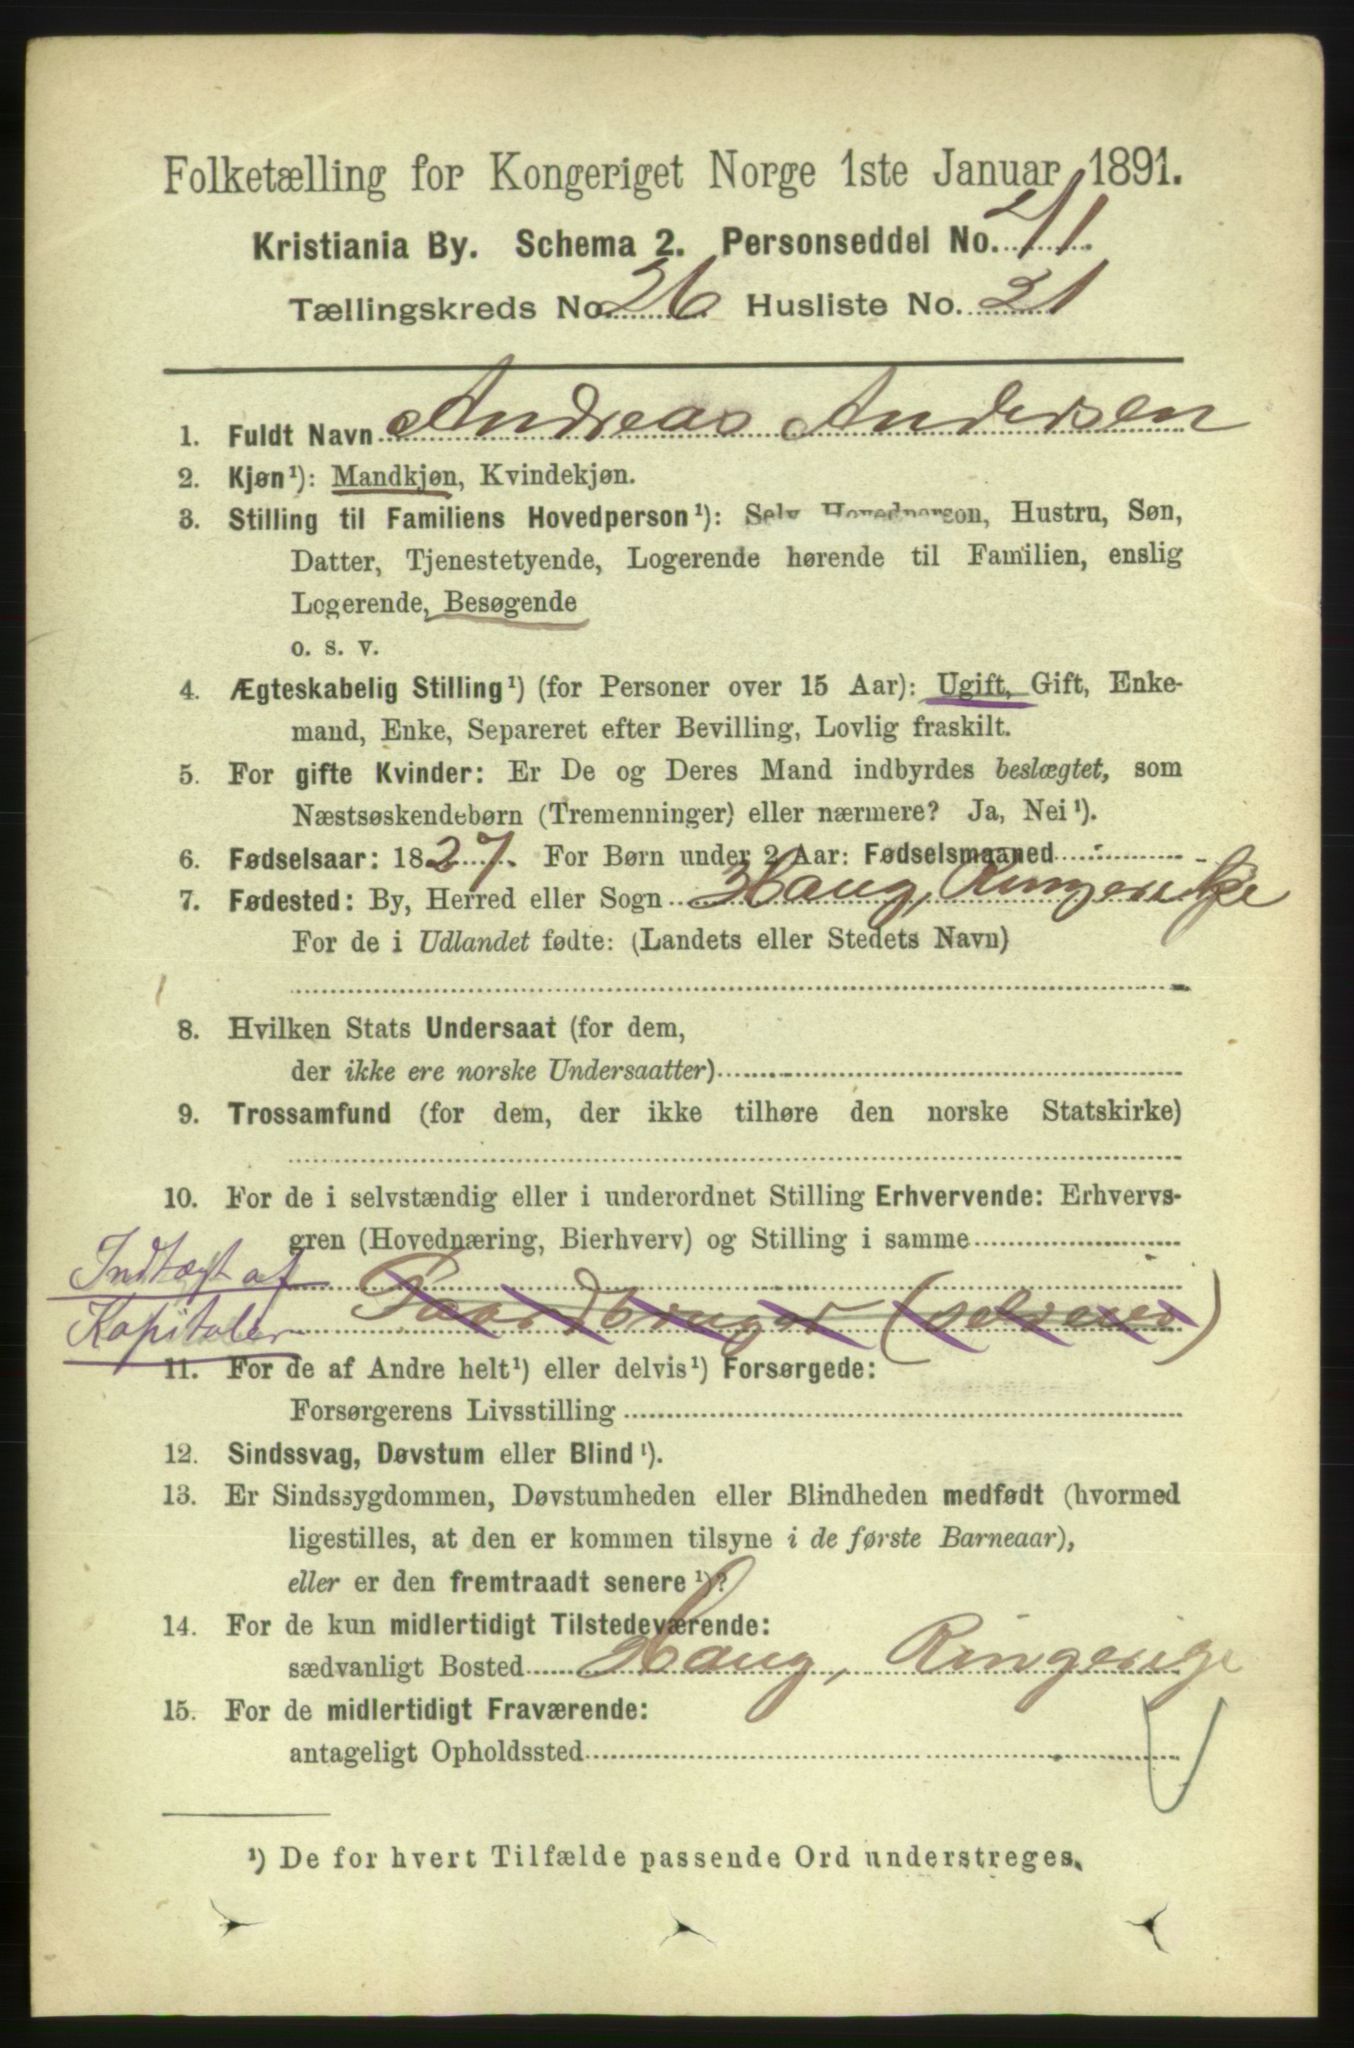 Folketælling for Kongeriget Norge 1ste Januar 1891.
Kristiania By. Schema 2. Personseddel No. 41.
Tællingskreds No. 26 Husliste No. 21
1. Fuldt Navn Andreas Andersen
2. Kjøn¹): Mandkjøn, Kvindekjøn.
3. Stilling til Familiens Hovedperson¹): Selv Hovedperson, Hustru, Søn,
Datter, Tjenestetyende, Logerende hørende til Familien, enslig
Logerende, Besøgende
o. s. v.
4. Ægteskabelig Stilling¹) (for Personer over 15 Aar): Ugift, Gift, Enke-
mand, Enke, Separeret efter Bevilling, Lovlig fraskilt.
5. For gifte Kvinder: Er De og Deres Mand indbyrdes beslægtet, som
Næstsøskendebørn (Tremenninger) eller nærmere? Ja, Nei¹).
6. Fødselsaar: 1827. For Børn under 2 Aar: Fødselsmaaned
7. Fødested: By, Herred eller Sogn Haug, Ringerike
For de i Udlandet fødte: (Landets eller Stedets Navn)
8. Hvilken Stats Undersaat (for dem,
der ikke ere norske Undersaatter)
9. Trossamfund (for dem, der ikke tilhøre den norske Statskirke)
10. For de i selvstændig eller i underordnet Stilling Erhvervende: Erhvervs-
gren (Hovednæring, Bierhverv) og Stilling i samme
Indtægt af
Kapitaler Gaardbruger (selveier)
11. For de af Andre helt¹) eller delvis¹) Forsørgede:
Forsørgerens Livsstilling
12. Sindssvag, Døvstum eller Blind¹).
13. Er Sindssygdommen, Døvstumheden eller Blindheden medfødt (hvormed
ligestilles, at den er kommen tilsyne i de første Barneaar),
eller er den fremtraadt senere¹)?
14. For de kun midlertidigt Tilstedeværende:
sædvanligt Bosted Haug, Ringerige
15. For de midlertidigt Fraværende:
antageligt Opholdssted
¹) De for hvert Tilfælde passende Ord understreges.